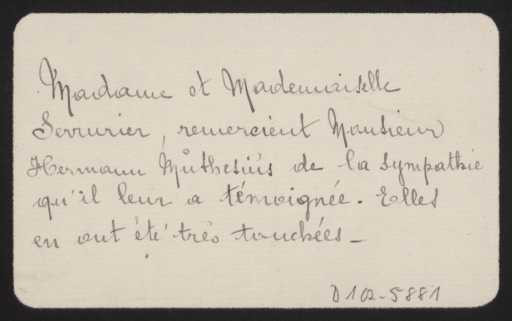 Madame et Mademoiselle
Serrurier, remercient Monsieur
Hermann Muthesius de la sympathie
qu'il leur a témoignée. Elles
en ont été très touchées_
D 102-5881